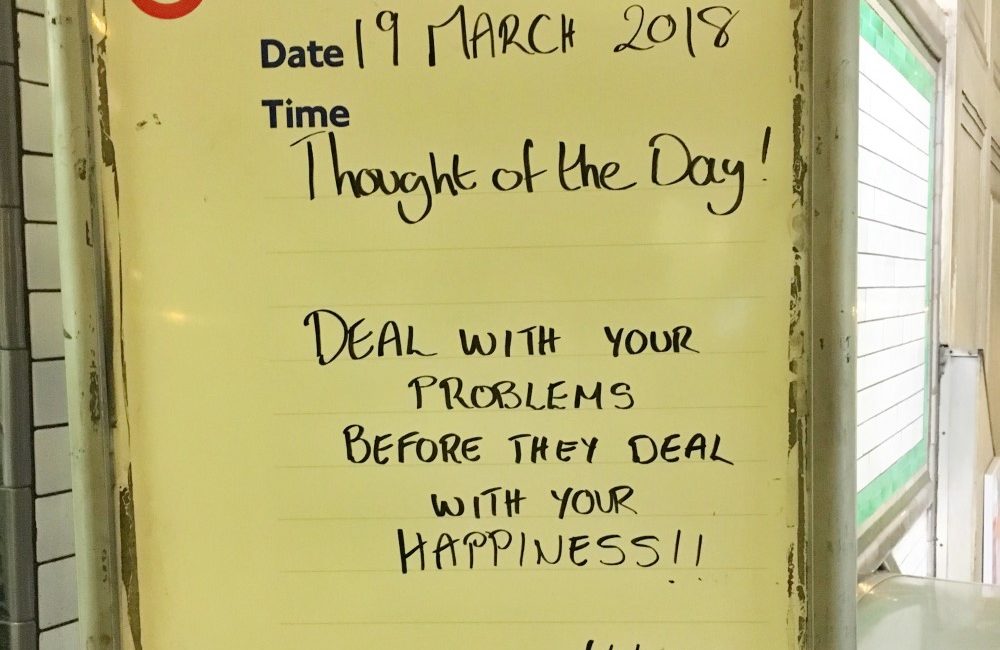 Date 19 MARCH 2018
Time
Thought of the Day!
DEAL WITH YOUR
PROBLEMS
BEFORE THEY DEAL
WITH YOUR
HAPPINESS!!